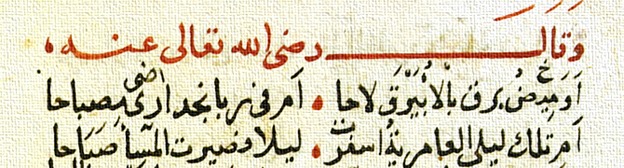 وقال رضي الله تعالى عنه
أوميض برق بالأبيرق لاحا • أم في ربا نجد أرى مصباحا
أم تلك ليلى العامرية أسفرت • ليلا فصيرت المساء صباحا